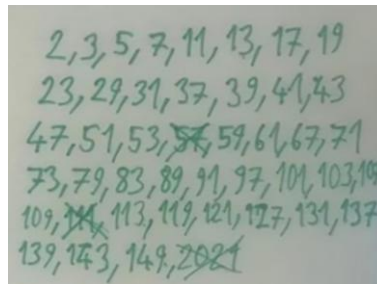 2, 3, 5, 7, 11, 13, 17, 19
23, 29, 31, 37, 39, 41, 43
47, 51, 53, 57, 59, 61, 67, 71
73, 79, 83, 89, 91, 97, 101, 103, 109
109, 111, 113, 119, 121, 127, 131, 137
139, 143, 149, 2021